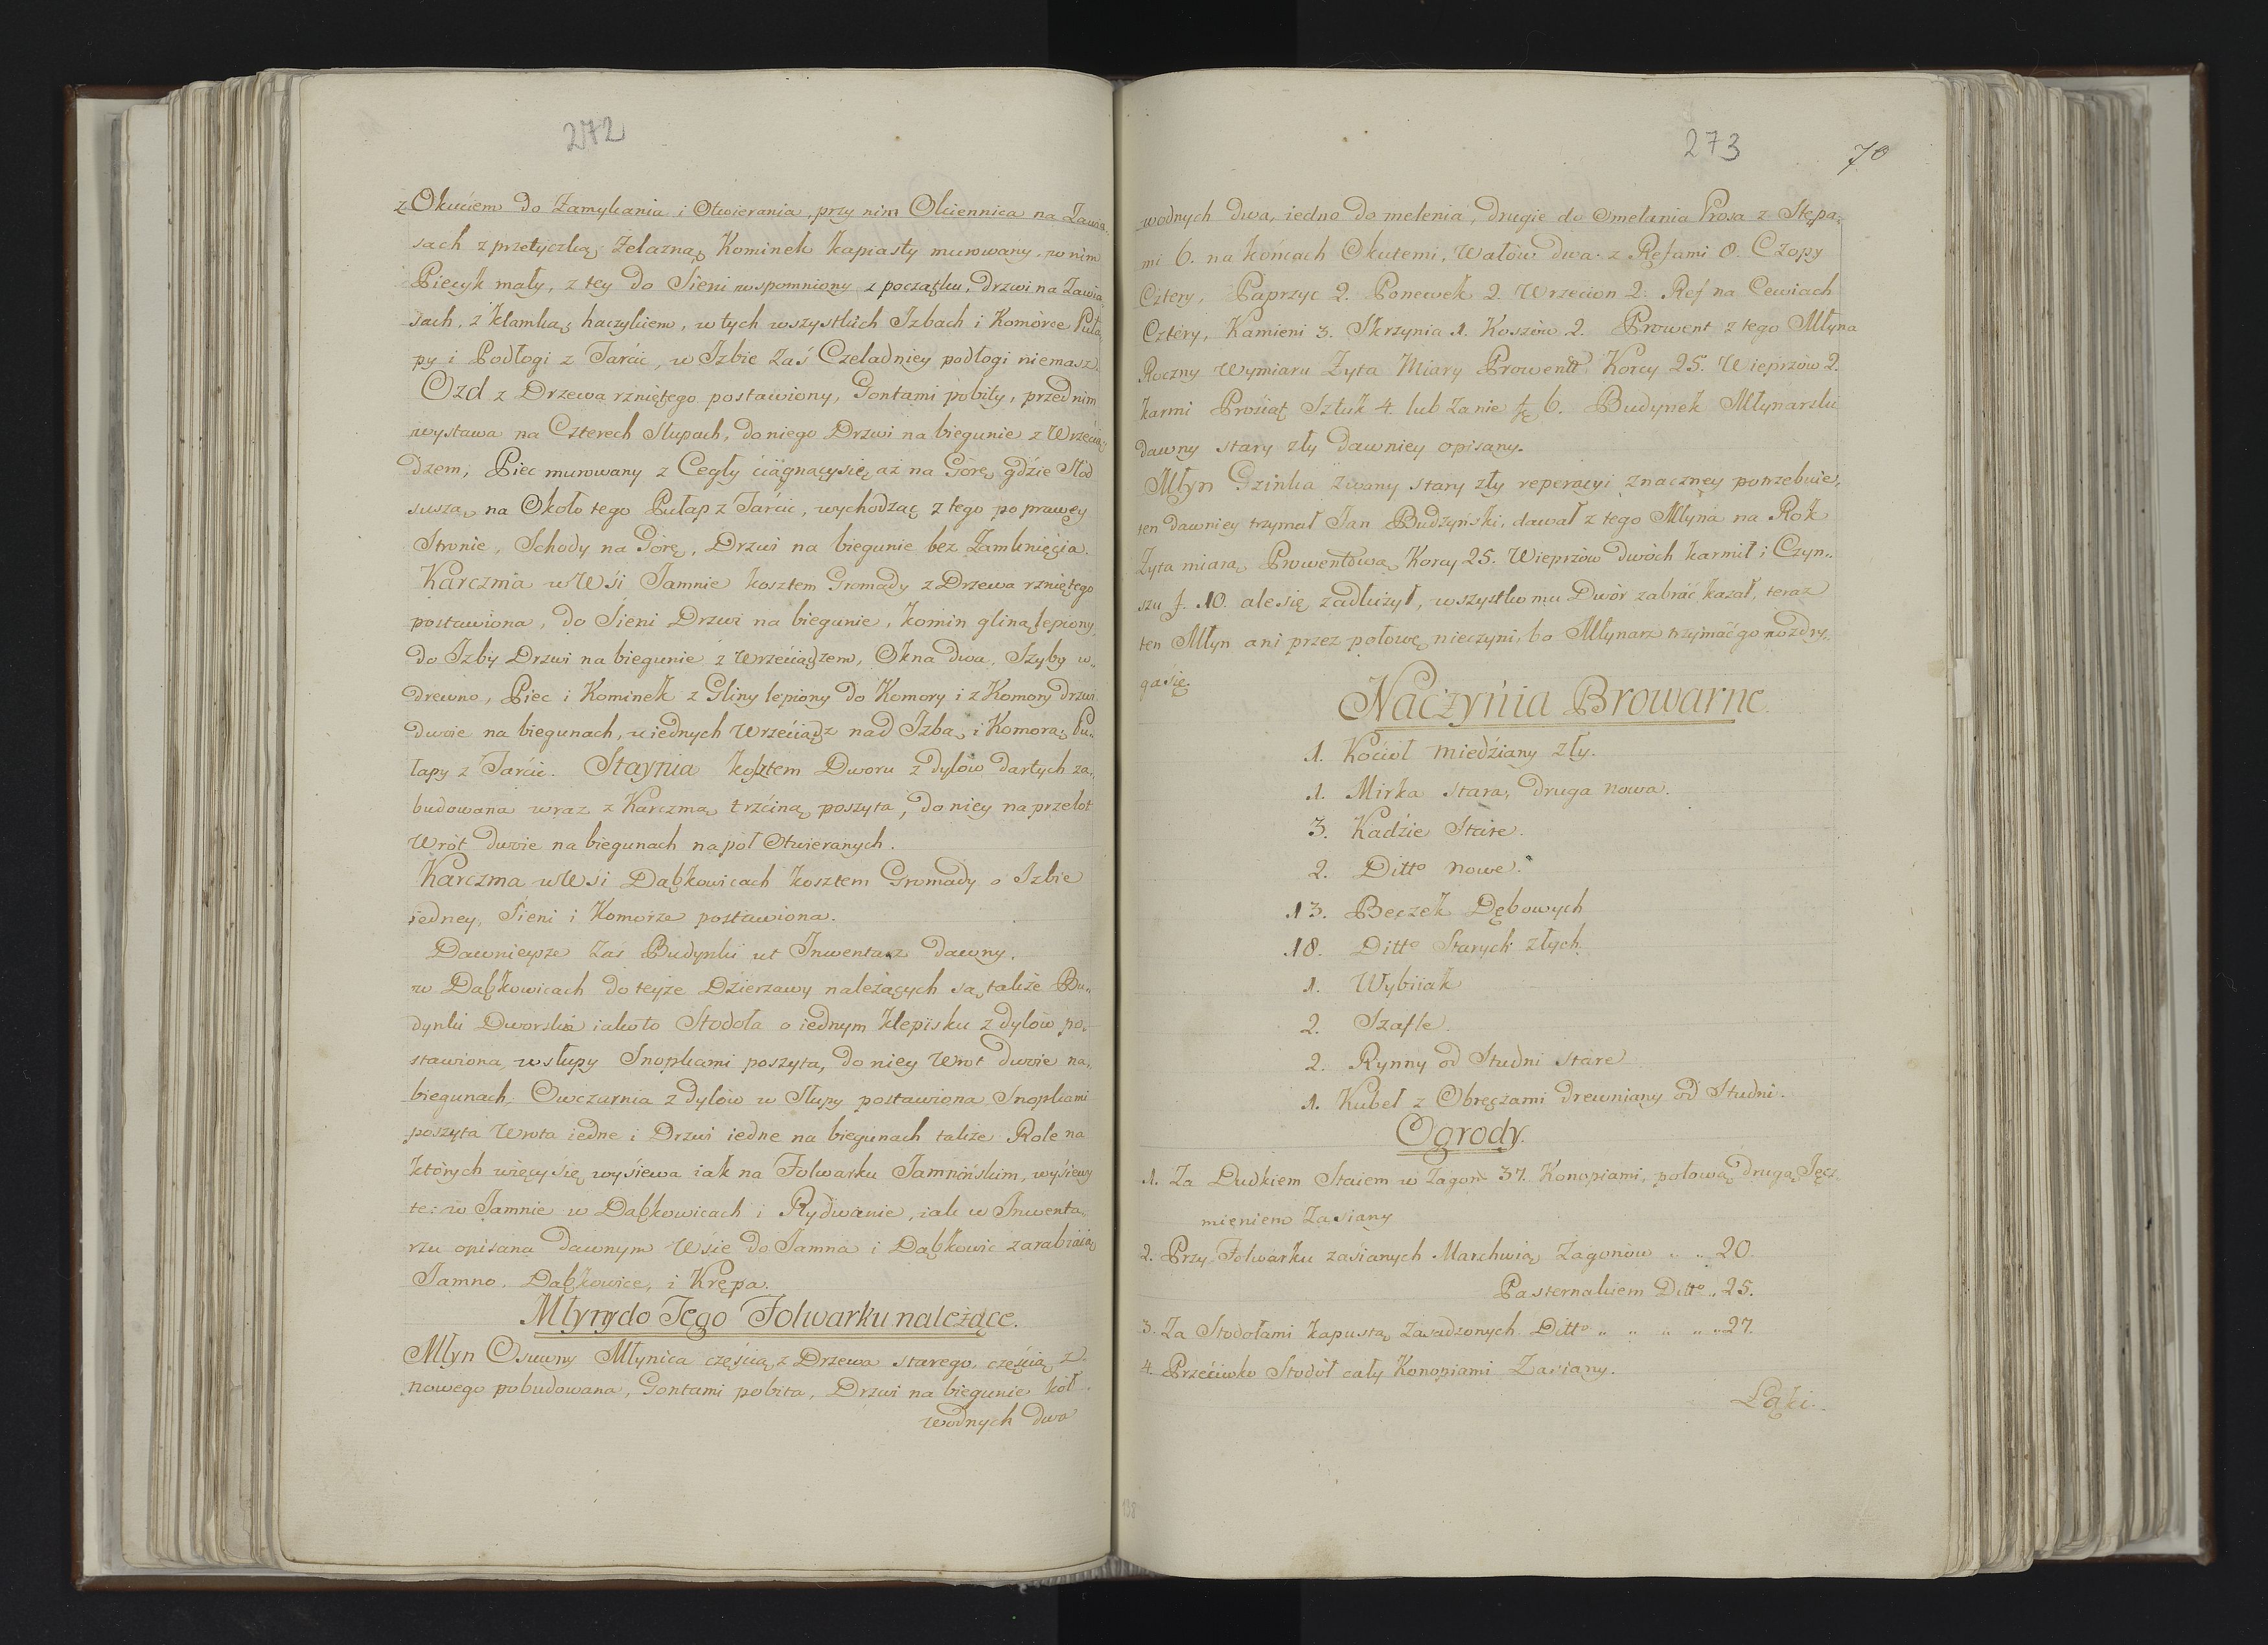 272
z Okuciem do Zamykania i Otwierania, przy nim Okiennica na Zawia„
sach z przetyczką Żelazną, Kominek kapiasty murowany, w nim
Piecyk mały, z tey do Sieni wspomniony z początku, drzwi na Zawia
sach, z klamką, haczykiem, w tych wszystkich Izbach i Komórce Puła„
py i Podłogi z Tarcic, w Izbie Zaś Czeladniey podłogi niemasz.
Ozd z Drzewa rzniętego postawiony, Gontami pobity, przed nim
wystawa na Czterech Słupach, do niego Drzwi na biegunie z Wrzecią„
dzem, Piec murowany z Cegły ciągnący się aż na Górę, gdzie Słod
suszą, na Około tego Pułap z Tarcic, wychodząc z tego po prawey
Stronie, Schody na Górę, Drzwi na biegunie bez Zamknięcia.
Karczma w Wsi Jamnie kosztem Gromady z Drzewa rzniętego
postawiona, do Sieni Drzwi na biegunie, komin gliną lepiony,
do Izby Drzwi na biegunie z Wrzeciądzem, Okna dwa, Szyby w„
drewno, Piec i Kominek z Gliny lepiony do Komory i z Komory drzwi
dwoie na biegunach, u iednych Wrzeciądz nad Izbą, i Komorą, Pu„
łapy z Tarcic. Staynia kosztem Dworu z dylów dartych za„
budowana wraz z Karczmą trzciną poszyta, do niey na przelot
Wrót dwoie na biegunach na poł Otwieranych.
Karczma w Wsi Dąbkowicach kosztem Gromady o Izbie
iedney, Sieni i Komorze postawiona.
Dawnieysze Zaś Budynki ut Inwentarz dawny.
w Dąbkowicach do teyże Dzierzawy należących są także Bu„
dynki Dworskie iako to Stodoła o iednym klepisku z dylów po„
stawiona w słupy Snopkami poszyta, do niey Wrot dwoie na„
biegunach, Owczarnia z dylów w Słupy postawiona Snopkami
poszyta Wrota iedne i Drzwi iedne na biegunach także Role na
których więcy się wysiewa iak na Folwarku Jamnińskim, wysiewy
te: w Jamnie w Dąbkowicach i Rydwanie, iak w Inwenta„
rzu opisana dawnym Wsie do Jamna i Dąbkowic zarabiaią
Jamno, Dąbkowice, i Krępa.
Młyny do Tego Folwarku należące.
Młyn Osuwny Młynica częścią z Drzewa starego, częścią z
nowego pobudowana, Gontami pobita, Drzwi na biegunie kół
wodnych dwa
273
70
wodnych dwa, iedno do melenia, drugie do Omełania Prosa z Stępa„
mi 6. na końcach Okutemi, Wałów dwa z Ręfami 8. Czopy
Cztery, Paprzyc 2. Ponewek 2. Wrzecion 2. Ref na Cewiach
Cztery, Kamieni 3. Skrzynia 1. Koszów 2. Prowent z tego Młyna
Roczny Wymiaru Zyta Miary Prowent: Korcy 25. Wieprzow 2.
karmi Prosiąt Sztuk 4. lub za nie f. 6. Budynek Młynarski
dawny stary zły dawniey opisany.
Młyn Gzinka zwany stary zły reperacyi znaczney potrzebuie,
ten dawniey trzymał Jan Budzyński, dawał z tego Młyna na Rok
Zyta miarą Prowentową Korcy 25. Wieprzow dwóch karmił i Czyn„
szu f. 10. ale się zadłużył, wszystko mu Dwór zabrać kazał, teraz
ten Młyn ani przez połowę nieczyni, bo Młynarz trzymać go wzdry„
ga się.
Naczynia Browarne.
1. Kocioł miedziany zły.
1. Mirka stara, druga nowa.
3. Kadzie Stare.
2. Ditto nowe.
13. Beczek Dębowych
18. Ditto Starych złych.
1. Wybiiak
2. Szafle.
2. Rynny od Studni stare
1. Kubeł z Obręczami drewniany od Studni.
Ogrody.
1. Za Dudkiem Staiem w Zagon 37. Konopiami, połową drugą Jęcz„
mieniem Zasiany
2. Przy Folwarku zasianych Marchwią Zagonów „ „ 20.
Pasternakiem Ditto „ 25.
3. Za Stodołami kapustą Zasadzonych Ditto „ „ „ „ 27.
4. Przeciwko Stodół cały Konopiami Zasiany.
Łąki.
138